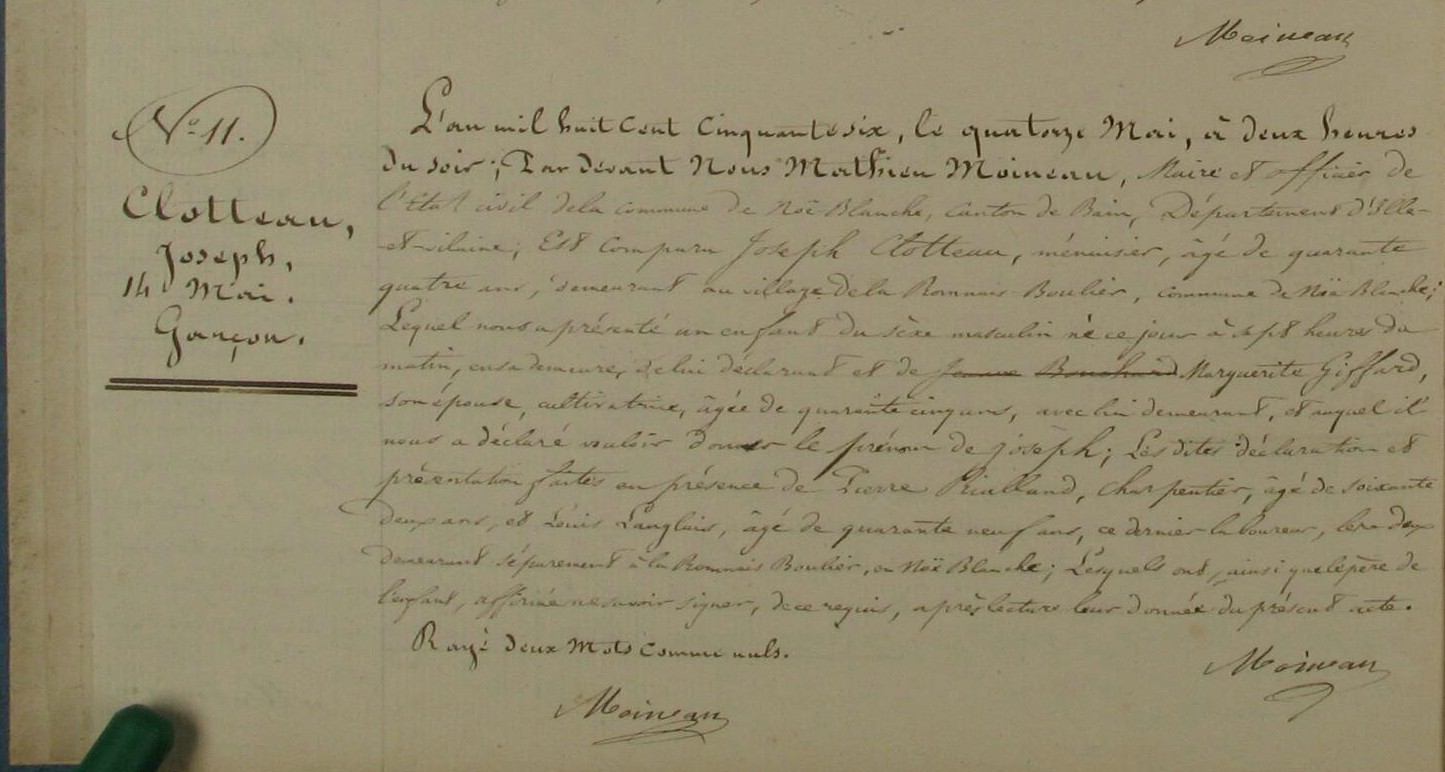 Moineau
N° 11.
Clotteau,
Joseph,
14 Mai.
Garçon.
L'an mil huit cent cinquante six, le quatorze Mai, à deux heures
du soir; Par devant Nous Mathieu Moineau, Maire et officier de
l'état civil dela commune de Noë Blanche, Canton de Bain, Département d'Ille-
-et-vilaine; Est Comparu Joseph Clotteau, ménuisier, âgé de quarante
quatre ans, demeurant au village dela Romnais Boulier, commune de Noë Blanche;
Lequel nous a présenté un enfant du sèxe masculin né ce jour à sept heures du
matin, en sa demeure, de lui déclarant et de Jeanne Bouchard Marguerite Giffard,
son épouse, cultivatrice, âgée de quarante cinq ans, avec lui demeurant, et auquel il
nous a déclaré vouloir donner le prénom de joseph; Les dites déclaration et
présentation faites en présence de Pierre Rialland, charpentier, âgé de soixante
deux ans, et Louis Langlais, âgé de quarante neuf ans, ce dernier laboureur, les deux
demeurant séparement à la Romnais Boulier, en Noë Blanche; Lesquels ont, ainsi que le père de
l'enfant, affirmé ne savoir signer, de ce requis, après lecture leur donnée du présent acte.
Rayé deux Mots comme nuls.
Moineau
Moineau